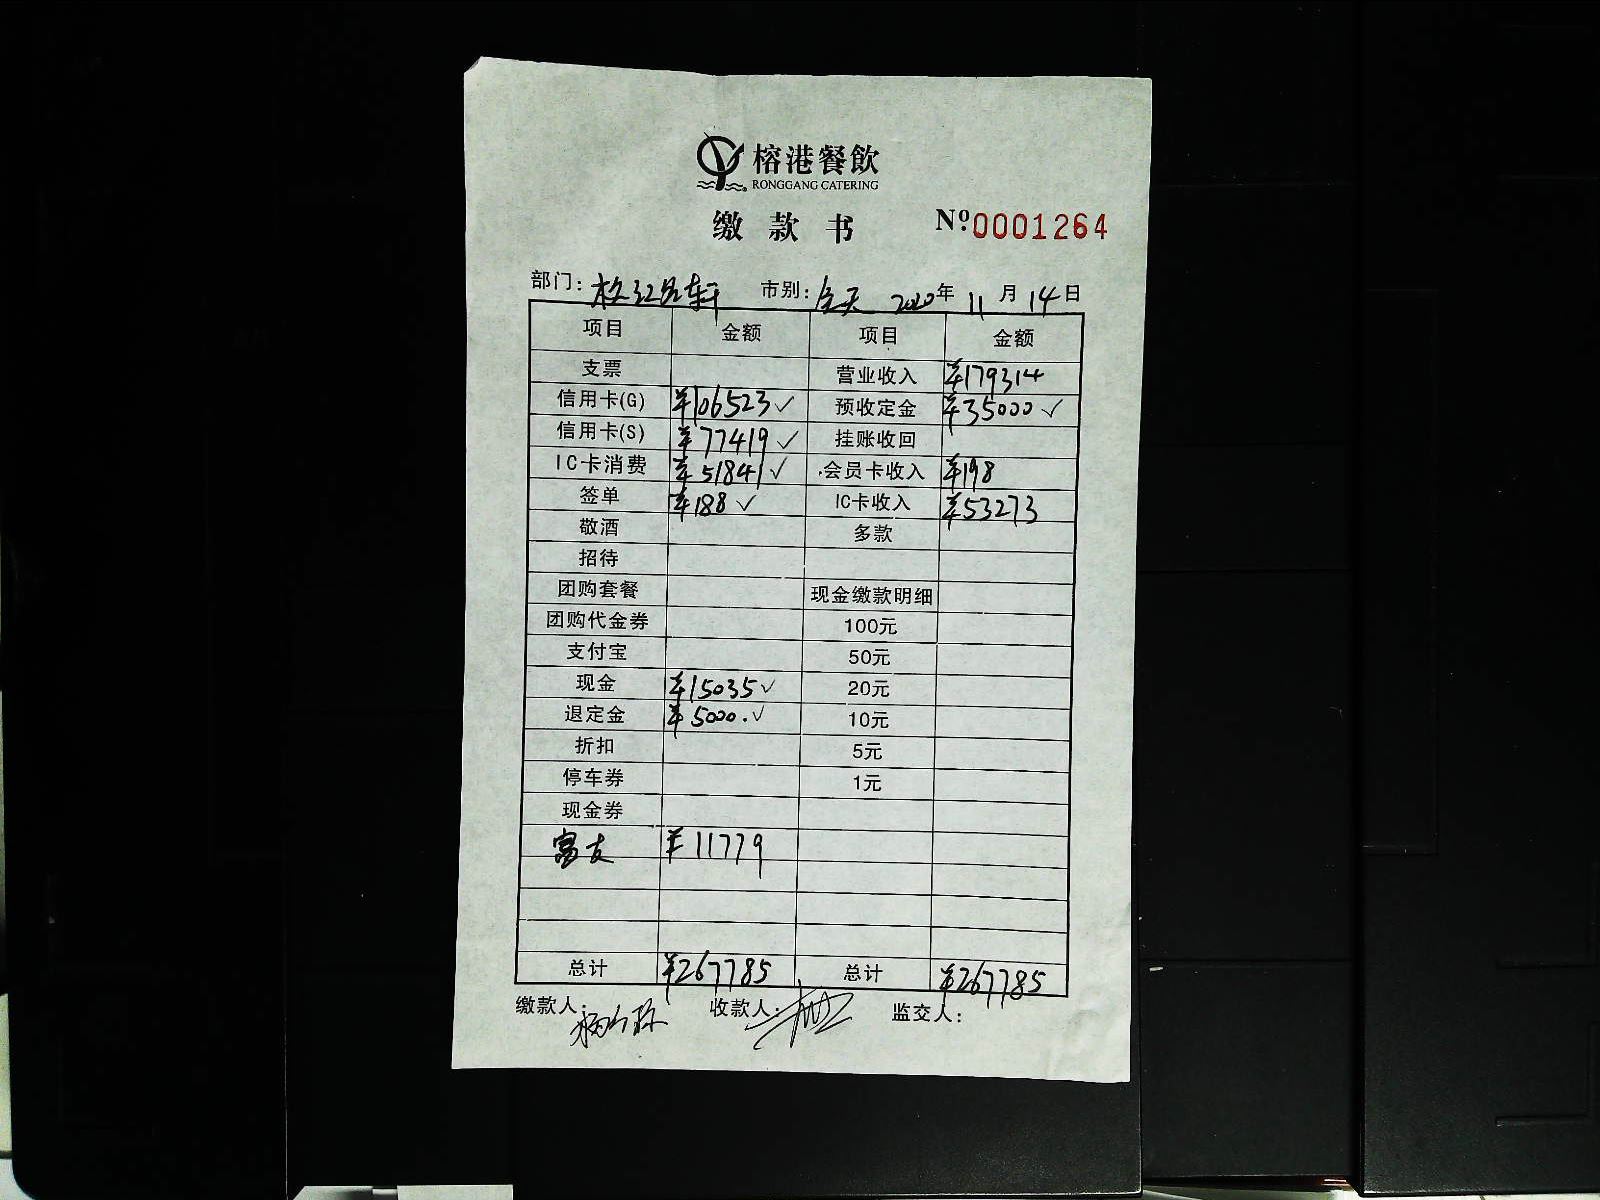 榕港餐飲
RONGGANG CATERING
缴款书 Nº0001264
部门: 市别: 全天 2020年 11月 14日
项目 金额 项目 金额
支票 营业收入 ¥179314
信用卡(G) ¥106523✓ 预收定金 ¥35000✓
信用卡(S) ¥77419✓ 挂账收回
IC卡消费 ¥51841✓ 会员卡收入 ¥198
签单 ¥188✓ IC卡收入 ¥53273
敬酒 多款
招待
团购套餐 现金缴款明细
团购代金券 100元
支付宝 50元
现金 ¥15035✓ 20元
退定金 ¥5000.✓ 10元
折扣 5元
停车券 1元
现金券
富友 ¥11779
总计 ¥267785 总计 ¥267785
缴款人: 收款人: 监交人: